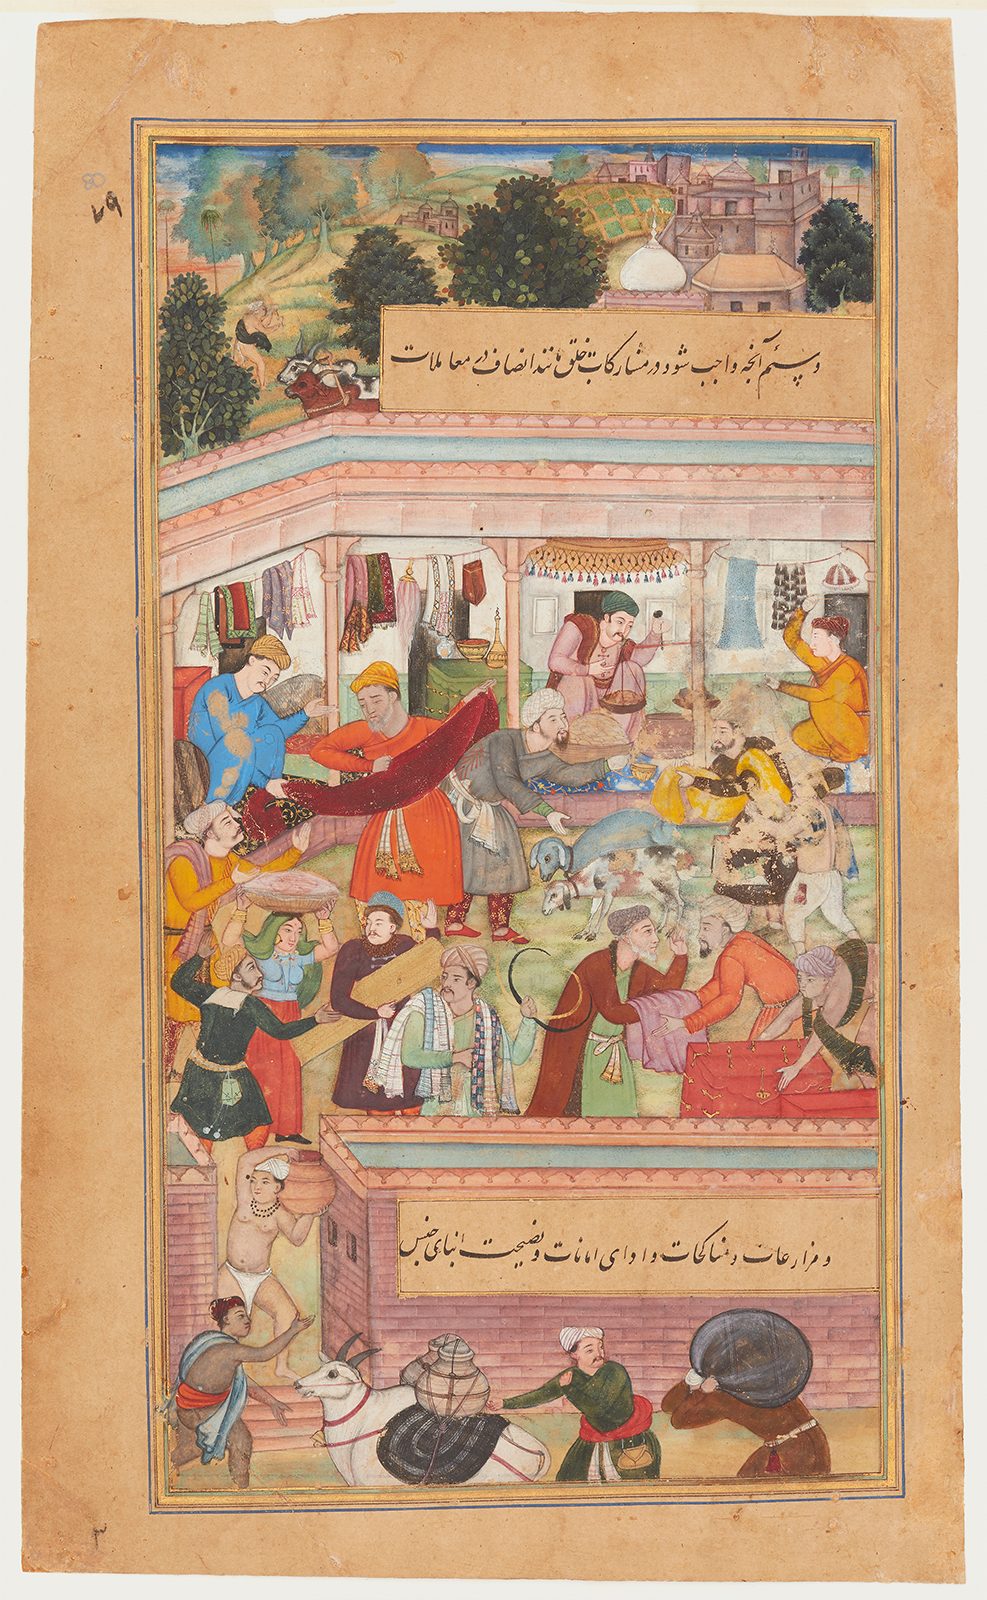 80
۷۹
وسیم آنچه واجب شود در مشارکات خلق مانند انصاف در معاملات
و مزارعات و مناکحات و ادای امانات و نصیحت ابنای جنس
۳